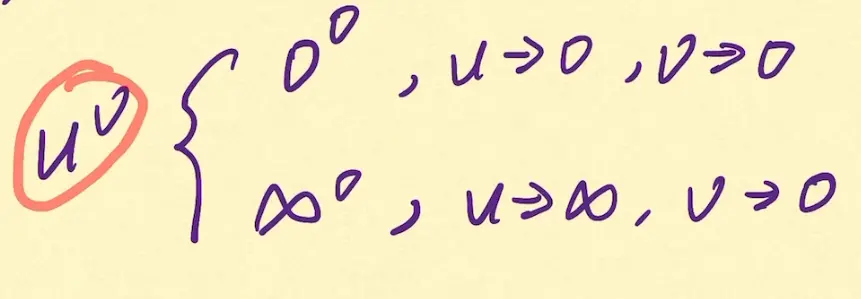 u^v { 0^0 , u→0 , v→0
∞^0 , u→∞ , v→0